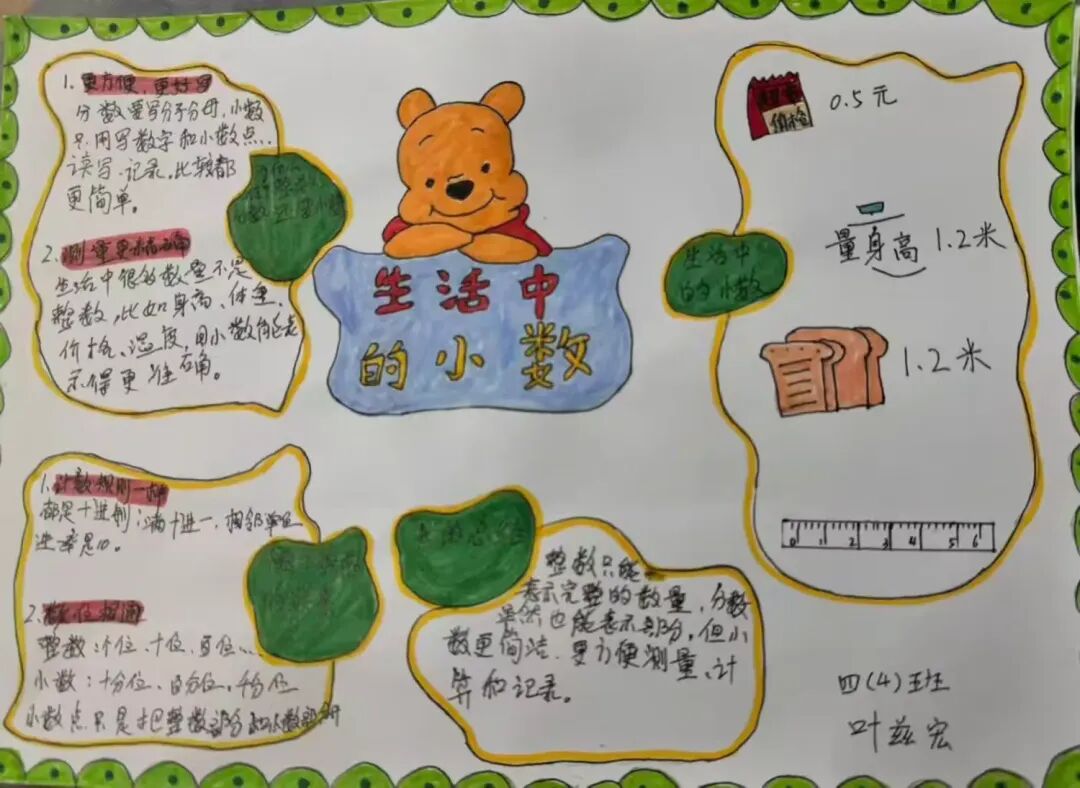 1. 更方便，更好写
分数要写分子分母，小数
只用写数字和小数点，
读写、记录、比较都
更简单。
2. 测量更精确
生活中很多数量不是
整数，比如身高、体重、
价格、温度，用小数能表
示得更准确。
生活中
的小数
价格
0.5元
量身高 1.2米
1.2米
生活中
的小数
0 1 2 3 4 5 6
1. 计数规则一样
都是十进制，满十进一，相邻单位
进率是10。
2. 数位相通
整数：个位、十位、百位...
小数：十分位、百分位、千分位
小数点只是把整数部分和小数部分
整数只能
表示完整的数量，分数
虽然也能表示部分，但小
数更简洁、更方便测量、计
算和记录。
四(4)班
叶兹宏